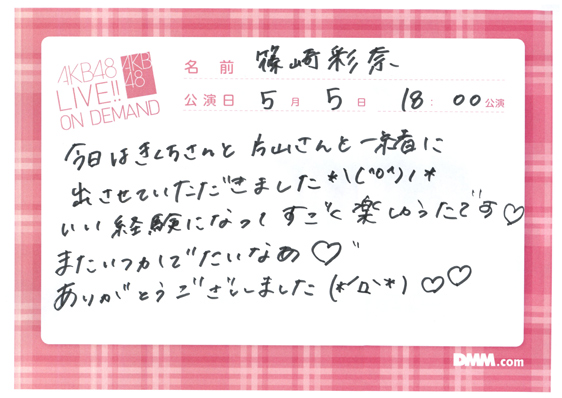 AKB48
LIVE!!
ON DEMAND
AKB
48
名前 篠崎彩奈
公演日 5月5日 18:00公演
今日はきくちさんと片山さんと一緒に
出させていただきました*\(^o^)/*
いい経験になってすごく楽しかったです♡
またいつかしでたいなあ♡
ありがとうございしました(*´Д`*)♡♡
DMM.com